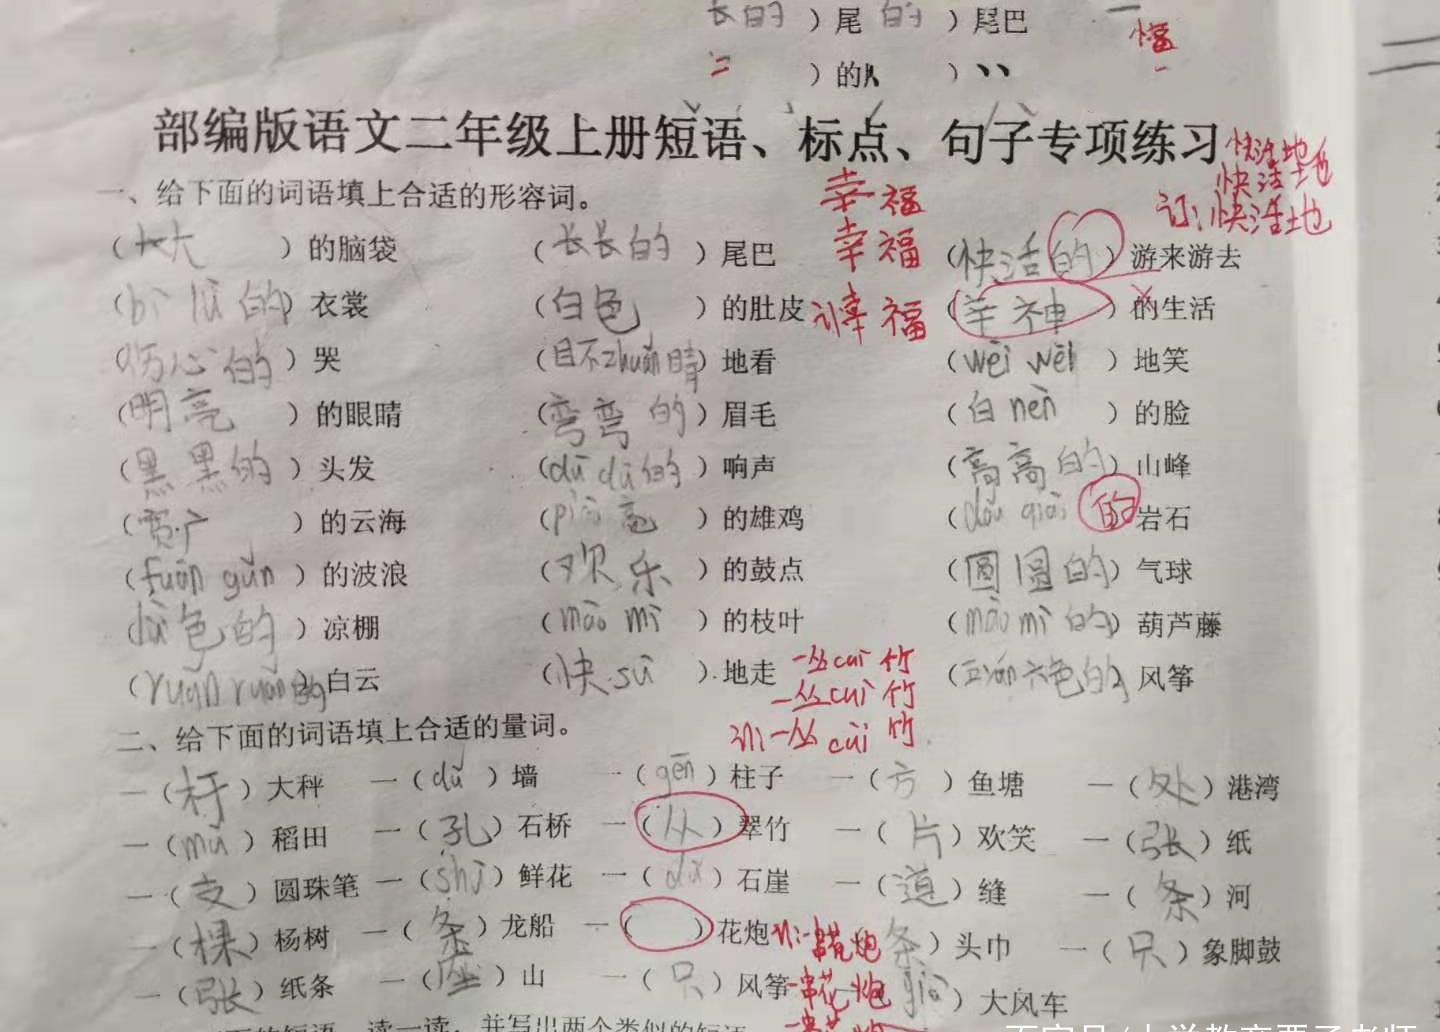 长的）尾 的）尾巴
二 ）的 ）
福
部编版语文二年级上册短语、标点、句子专项练习
快活地
快活地
订：快活地
一、给下面的词语填上合适的形容词。
幸福
幸福
订幸福
（大大 ）的脑袋 （长长的 ）尾巴 （快活的）游来游去
（bì lǜ 的）衣裳 （白色 ）的肚皮 （ 神 ）的生活
（伤心的 ）哭 （目不zhuǎn睛）地看 （wēi wēi ）地笑
（明亮 ）的眼睛 （弯弯 的）眉毛 （白nèn ）的脸
（黑黑的 ）头发 （dū dū的）响声 （高高的）山峰
（宽广 ）的云海 （piào亮 ）的雄鸡 （dǒu qiào的）岩石
（fuān gǔn ）的波浪 （欢乐 ）的鼓点 （圆圆的）气球
（lǜ色的 ）凉棚 （mào mì ）的枝叶 （mào mì的）葫芦藤
（ruǎn ruǎn的）白云 （快sù ）地走 （五yán六色的）风筝
一丛cuì竹
一丛cuì竹
订：一丛cuì竹
二、给下面的词语填上合适的量词。
一（杆）大秤 一（dǔ）墙 一（gēn）柱子 一（方）鱼塘 一（处）港湾
一（mǔ）稻田 一（孔）石桥 一（从）翠竹 一（片）欢笑 一（张）纸
一（支）圆珠笔 一（shù）鲜花 一（ ）石崖 一（道）缝 一（条）河
一（棵）杨树 一（条）龙船 一（ ）花炮 （条）头巾 一（只）象脚鼓
订：一串花炮
一串花炮
一（张）纸条 一（座）山 一（只）风筝 ）大风车
的短语，读一读，并写出两个类似的短语
百家号/小学教育贾子老师